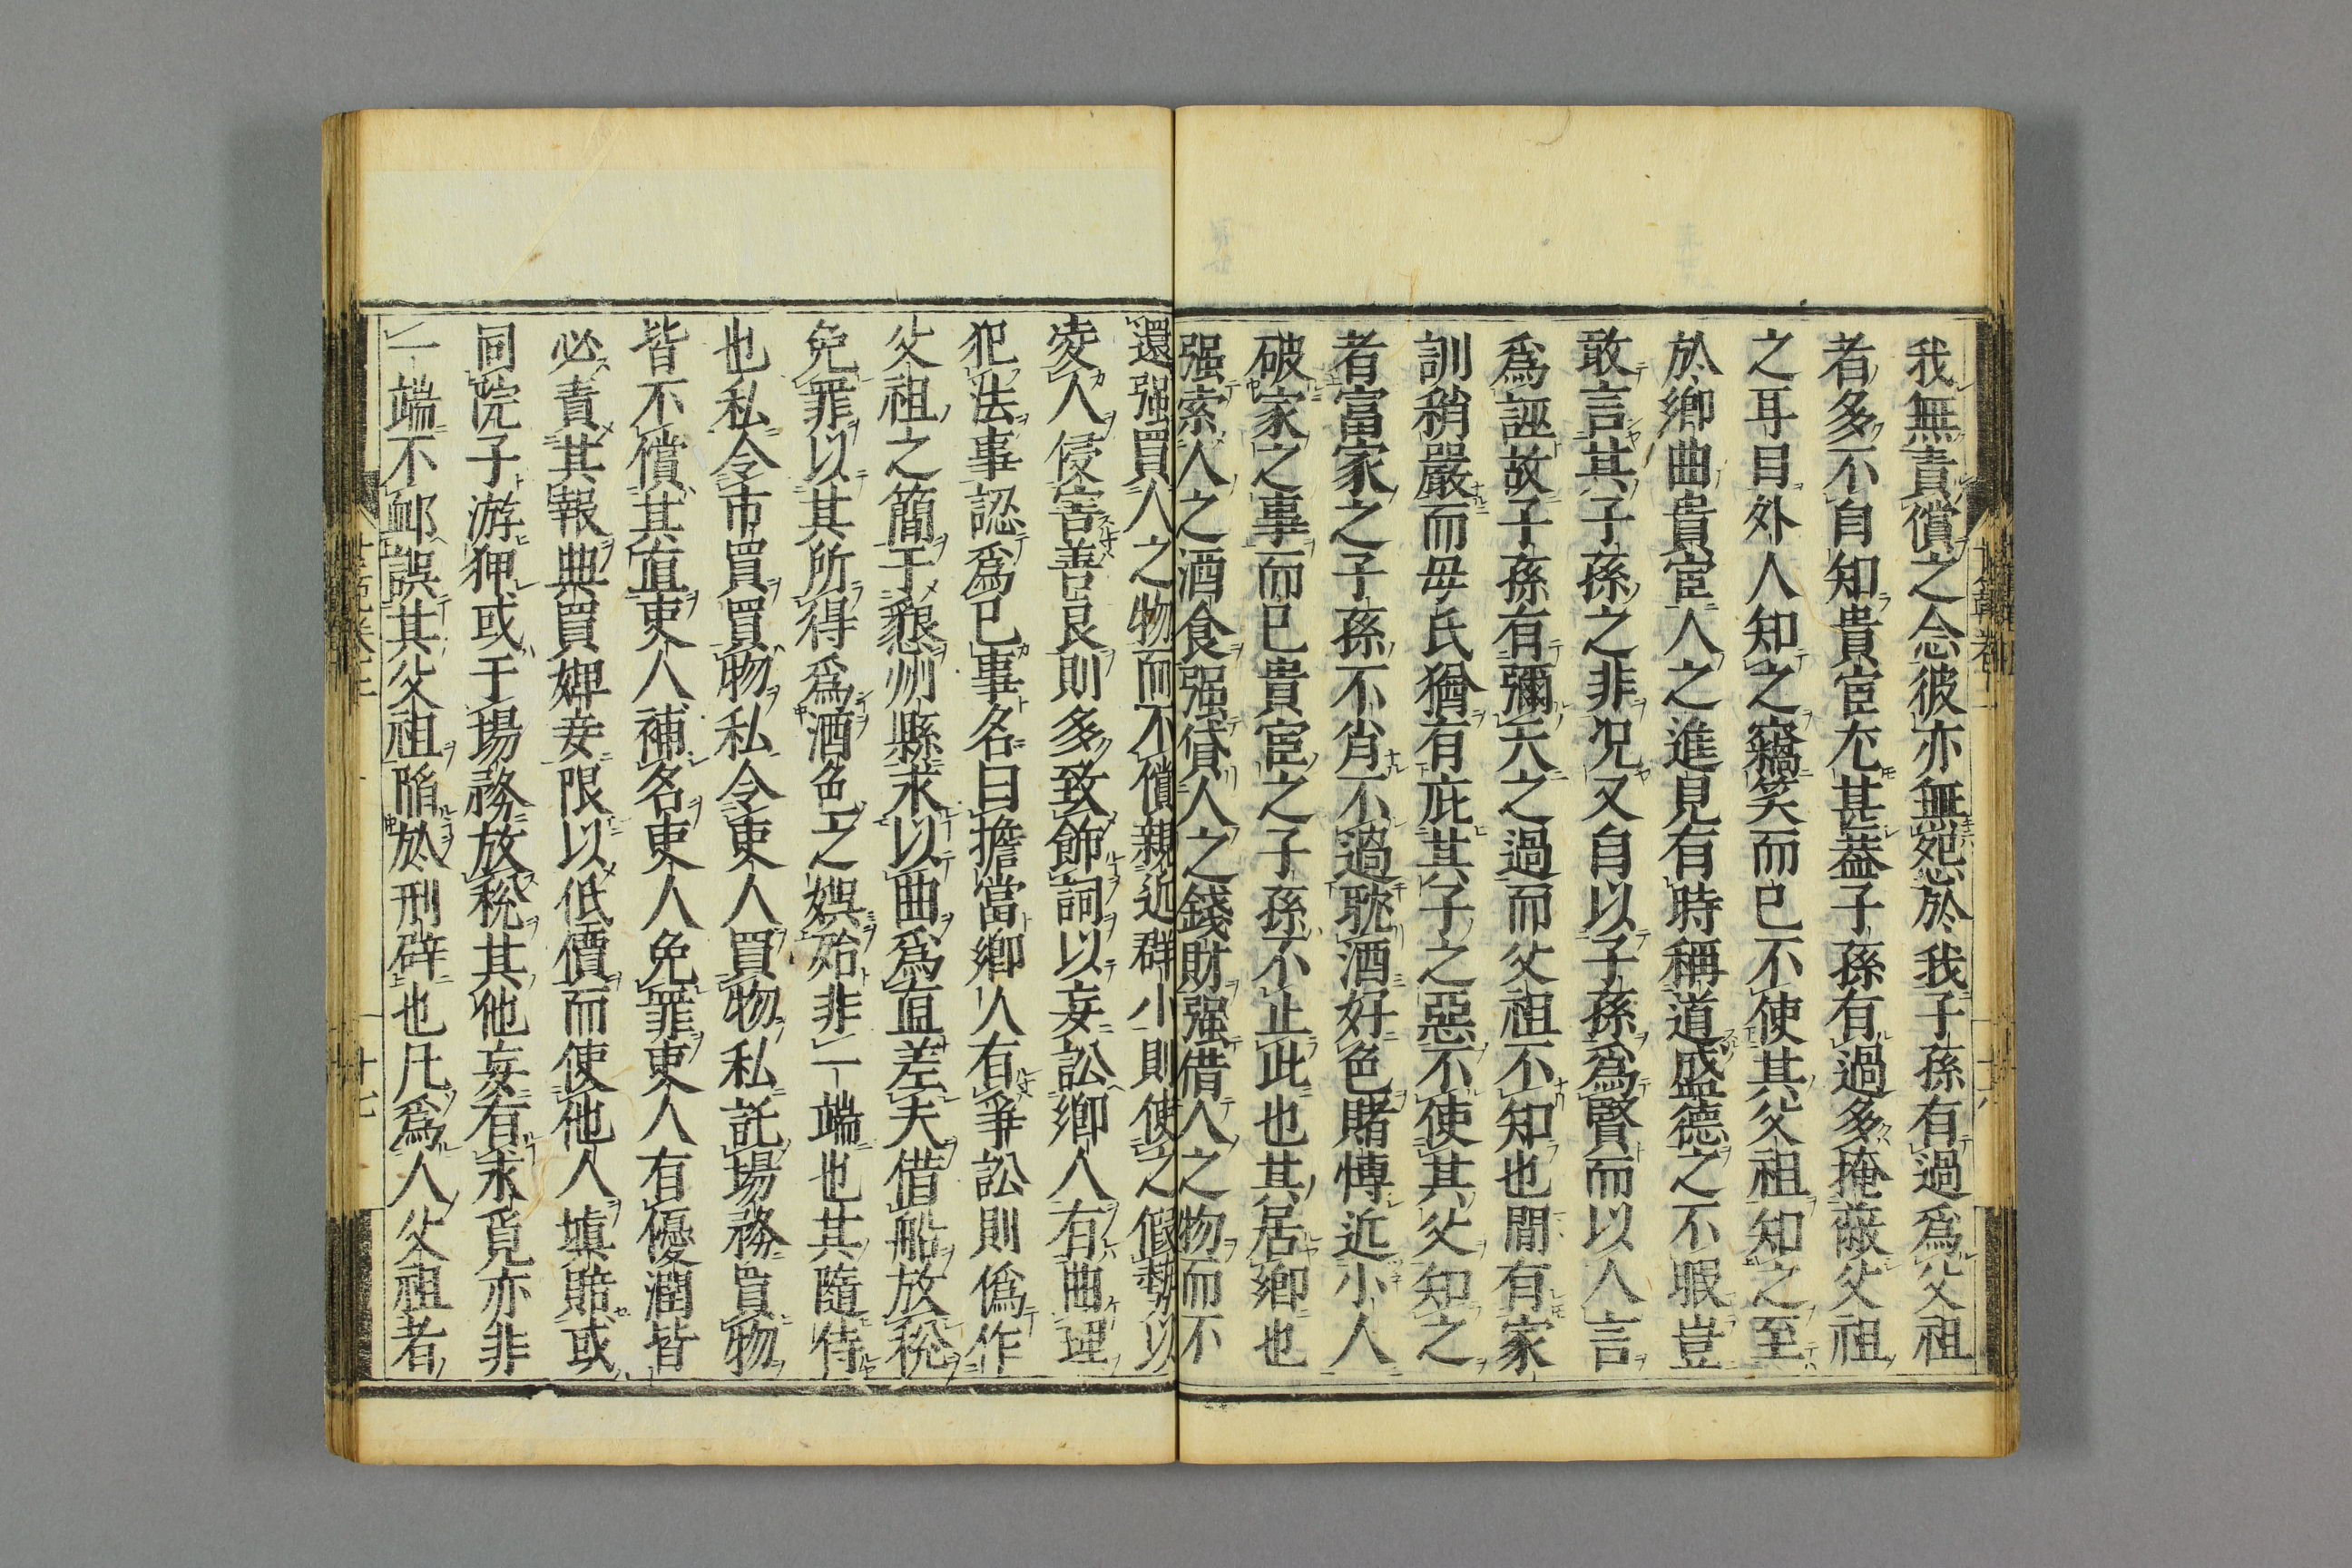 我無責償之念彼亦無怨於我子孫有過爲父祖
者多不自知貴宦尤甚蓋子孫有過多掩蔽父祖
之耳目外人知之竊笑而已不使其父祖知之至
於鄉曲貴宦人之進見有時稱道盛德之不暇豈
敢言其子孫之非况又自以子孫爲賢而以人言
爲誣故子孫有彌天之過而父祖不知也間有家
訓稍嚴而母氏猶有庇其子之惡不使其父知之
者富家之子孫不肖不過耽酒好色賭愽近小人
破家之事而已貴宦之子孫不止此也其居鄉也
强索人之酒食强貸人之錢財强借人之物而不
還强買人之物而不償親近群小則使之假勢以
凌人侵害善良則多致飾詞以妄訟鄉人有曲理
犯法事認爲已事名曰擔當鄉人有爭訟則僞作
父祖之簡于懇州縣求以曲爲直差夫借船放稅
免罪以其所得爲酒色之娯殆非一端也其隨侍
也私令市買買物私令吏人買物私託塲務買物
皆不償其直吏人補名吏人免罪吏人有優潤皆
必責其報典買婢妾限以低價而使他人塡賠或
同院子游狎或于塲務放稅其他妄有求覓亦非
一端不䘏誤其父祖陷於刑辟也凡爲人父祖者